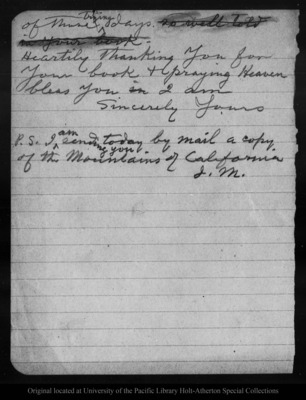 of those trying days. so well told
in your book.
Heartily thanking you for
your book & praying Heaven
bless you in I am
Sincerely Yours
P.S. I am sending you today by mail a copy
of the Mountains of California
J. M.
Original located at University of the Pacific Library Holt-Atherton Special Collections